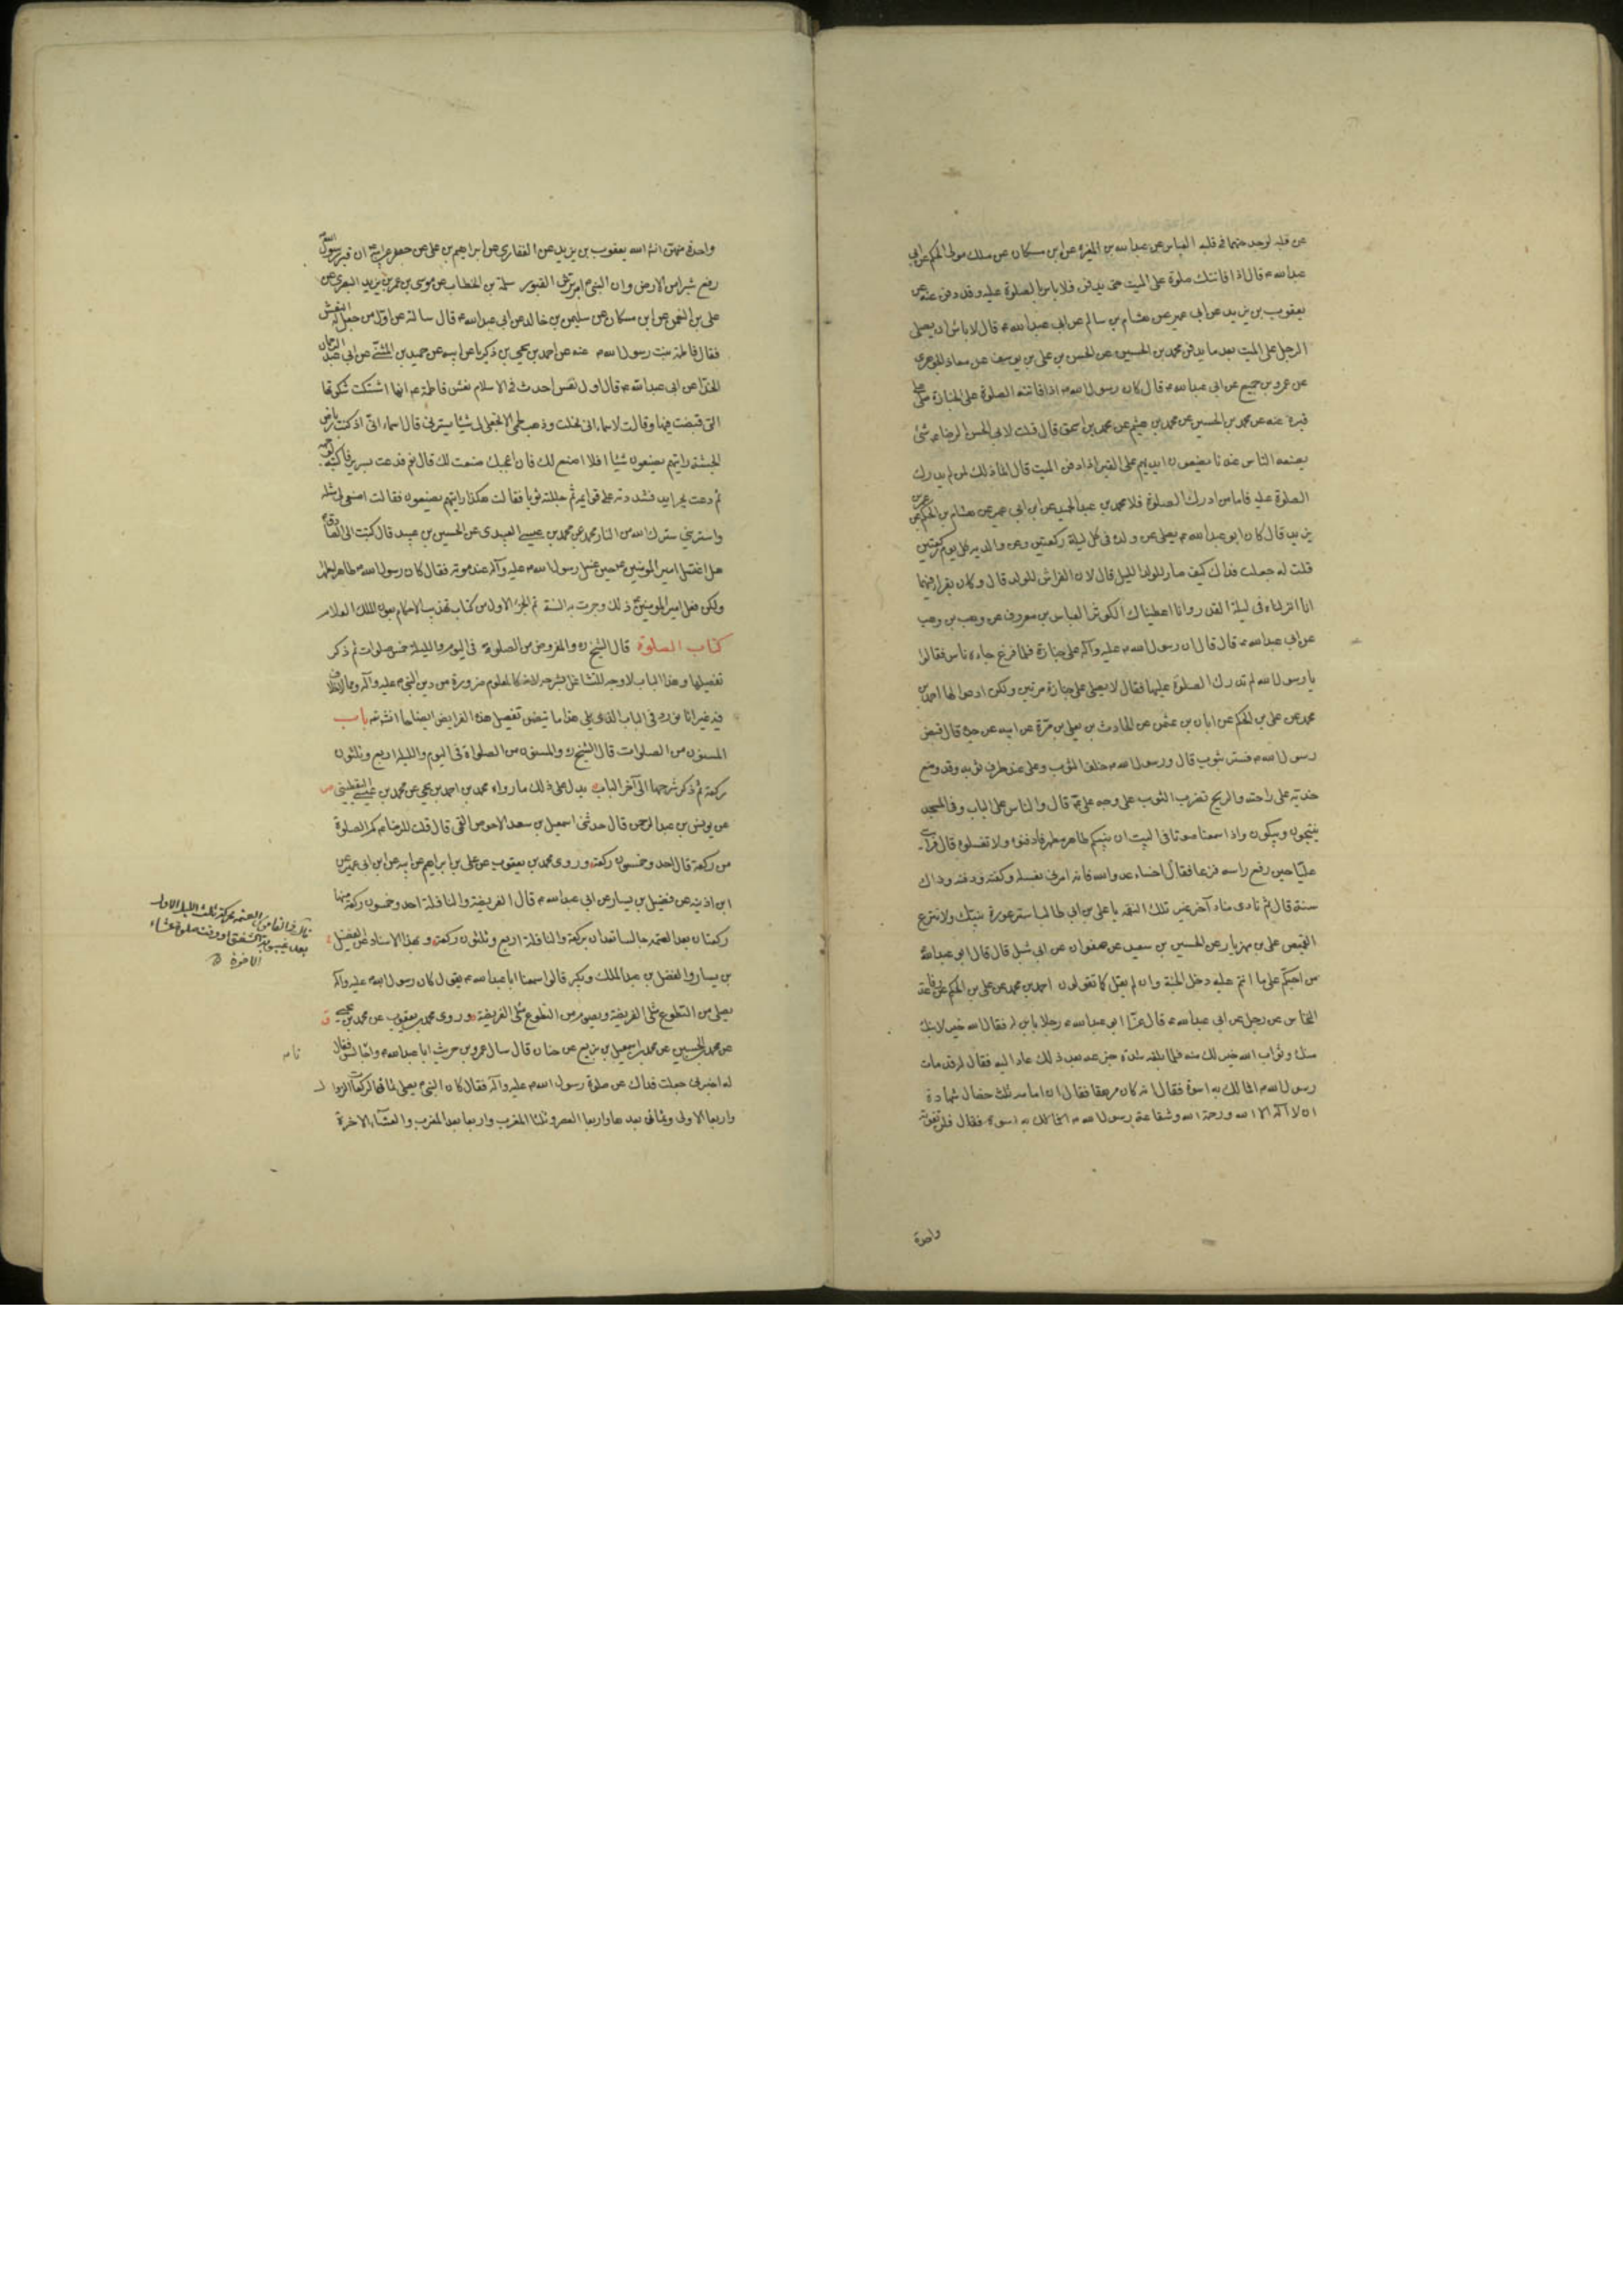 عن قلبه لوجد حبهما في قلبه العباس عن عبد الله بن المغيرة عن ابن مسكان عن ملك مولى الحكم عن ابي
عبد الله ع قال اذا فاتتك صلوة على الميت حتى يدفن فلا باس بالصلوة عليه وقد دفن عنه عن
يعقوب بن يزيد عن ابي عمير عن هشام بن سالم عن ابي عبد الله ع قال لا باس ان يصلى
الرجل على الميت بعد ما يدفن محمد بن الحسين عن الحسن بن علي بن يوسف عن معاذ الجوهري
عن عمرو بن جميع عن ابي عبد الله ع قال كان رسول الله ص اذا فاتته الصلوة على الجنازة صلى على
قبره عنه عن محمد بن الحسين عن محمد بن عن محمد بن اسحق قال قلت لابي الحسن الرضا ع شئ
يصنعه الناس عندنا يضعون ايديهم على القبر اذا دفن الميت قال انما ذلك لمن لم يدرك
الصلوة عليه فاما من ادرك الصلوة فلا محمد بن عبد الحميد عن ابن ابي عمير عن هشام بن الحكم عن عمر بن
يزيد قال كان ابو عبد الله ع يصلى عن ولده في كل ليلة ركعتين وعن والديه في كل يوم ركعتين
قلت له جعلت فداك كيف صار للولد الليل قال لان الفراش للولد قال وكان يقرا فيهما
انا انزلناه في ليلة القدر وانا اعطيناك الكوثر العباس بن معروف عن وهب بن وهب
عن ابي عبد الله ع قال قال ان رسول الله ص عليه وآله صلى على جنازة فلما فرغ جاءه ناس فقالوا
يا رسول الله لم ندرك الصلوة عليها فقال لا يصلى على جنازة مرتين ولكن ادعوا لها احمد بن
محمد عن علي بن الحكم عن ابان بن عثمن عن الحارث بن يعلى بن مرة عن ابيه عن جده قال قبض
رسول الله ص فستر بثوب قال ورسول الله ص خلف الثوب وعلى عند طرف ثوبه وقد وضع
خديه على راحته والريح تضرب الثوب على وجه علي ع قال والناس على الباب وفي المسجد
ينتحبون ويبكون واذا سمعنا صوتا في البيت ان نبيكم طاهر مطهر فادفنوه ولا تغسلوه قال فرايت
عليا حين رفع راسه فزعا فقال اخسا عدو الله فانه امرني بغسله وكفنه ودفنه وذاك
سنة قال ثم نادى مناد آخر غير تلك النغمة يا علي بن ابي طالب استر عورة نبيك ولا تنزع
القميص علي بن مهزيار عن الحسين بن سعيد عن صفوان عن ابي شبل قال قال ابو عبد الله
من احبكم على ما انتم عليه دخل الجنة وان لم يقل كما تقولون احمد بن محمد عن علي بن الحكم عن رفاعة
النخاس عن رجل عن ابي عبد الله ع قال عزا ابو عبد الله ع رجلا بابن له فقال الله خير لابنك
منك وثواب الله خير لك منه فلما بلغه شدة جزعه بعد ذلك عاد اليه فقال له قد مات
رسول الله ص افما لك به اسوة فقال انه كان مرهقا فقال ان امامه ثلث خصال شهادة
ان لا اله الا الله ورحمة الله وشفاعة رسول الله ص فقال فلن تفوته
واحدة
واحدة منهن انشاء الله يعقوب بن يزيد عن الغفاري عن ابراهيم بن علي عن جعفر عن ابيه ع ان قبر رسول الله
رفع شبرا من الارض وان النبي ص امر برش القبور سلمة بن الخطاب عن موسى بن عمر بن يزيد البصري عن
علي بن النعمن عن ابن مسكان عن سليمن بن خالد عن ابي عبد الله ع قال سالته عن اول من جعل له النعش
فقال فاطمة بنت رسول الله ص عنه عن احمد بن يحيى بن زكريا عن ابيه عن حميد بن المثنى عن ابي عبد الرحمان
الحذا عن ابي عبد الله ع قال اول نعش احدث في الاسلام نعش فاطمة ع انها اشتكت شكوتها
التي قبضت فيها وقالت لاسماء اني نحلت وذهب لحمي الا تجعلى لي شيئا يسترني قال اسماء اني اذ كنت بارض
الحبشة رايتهم يصنعون شيئا افلا اصنع لك فان اعجبك صنعت لك قال نعم فدعت بسرير فاكبته لوجهه
ثم دعت بجرايد فشدته على قوايمه ثم جللته ثوبا فقالت هكذا رايتهم يصنعون فقالت اصنعي لي مثله
واستريني سترك الله من النار محمد عن محمد بن عيسى العبيدي عن الحسين بن عبيد قال كتبت الى الصادق ع
هل اغتسل امير المومنين ع حين غسل رسول الله ص عليه وآله عند موته فقال كان رسول الله ص طاهر مطهر
ولكن فعل امير المومنين ع ذلك وجرت به السنة تم الجزء الاول من كتاب تهذيب الاحكام بعون الملك العلام
كتاب الصلوة قال الشيخ ره والمفروض من الصلوة في اليوم والليلة خمس صلوات ثم ذكر
تفصيلها وهذا الباب لا وجه للتشاغل بشرحه لانه كالمعلوم ضرورة من دين النبي ص عليه وآله ومما لا خلاف
فيه غير انا نورد في الباب الذي يلي هذا ما يتضمن تفصيل هذه الفرايض ايضا انشاء الله باب
المسنون من الصلوات قال الشيخ ره والمسنون من الصلواة في اليوم والليلة اربع وثلثون
ركعة ثم ذكر شرحها الى آخر الباب يدل على ذلك ما رواه محمد بن احمد بن يحيى عن محمد بن عيسى اليقطيني
عن يونس بن عبد الرحمن قال حدثني اسمعيل بن سعد الاحوص القمي قال قلت للرضا ع كم الصلوة
من ركعة قال احد وخمسون ركعة وروى محمد بن يعقوب عن علي بن ابراهيم عن ابيه عن ابن ابي عمير عن
ابن اذينه عن فضيل بن يسار عن ابي عبد الله ع قال الفريضة والنافلة احد وخمسون ركعة منها
ركعتان بعد العتمة جالسا تعدان بركعة والنافلة اربع وثلثون ركعة وبهذا الاسناد عن الفضيل
بن يسار والفضل بن عبد الملك وبكير قالوا سمعنا ابا عبد الله ع يقول كان رسول الله ص عليه وآله
يصلى من التطوع مثلى الفريضة ويصوم من التطوع مثلى الفريضة وروى محمد بن يعقوب عن محمد بن يحيى
عن محمد بن الحسين عن محمد بن اسمعيل بن بزيع عن حنان قال سال عمرو بن حريث ابا عبد الله ع وانا جالس فقال
له اخبرني جعلت فداك عن صلوة رسول الله ص عليه وآله فقال كان النبي ص يصلى ثماني ركعات الزوال
واربعا الاولى وثماني بعدها واربعا العصر وثلثا المغرب واربعا بعد المغرب والعشاء الاخرة
قال في القاموس العتمه محركة ثلث الليل الاول
بعد غيبوبة الشفق او وقت صلوة عشاء
الاخرة